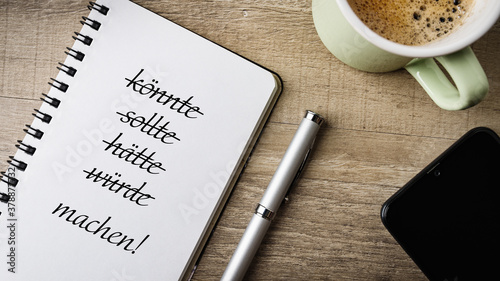 könnte
sollte
hätte
würde
machen!